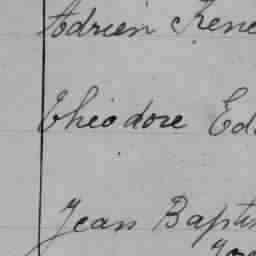 Adrien Irene
Theodore Ed
Jean Baptis